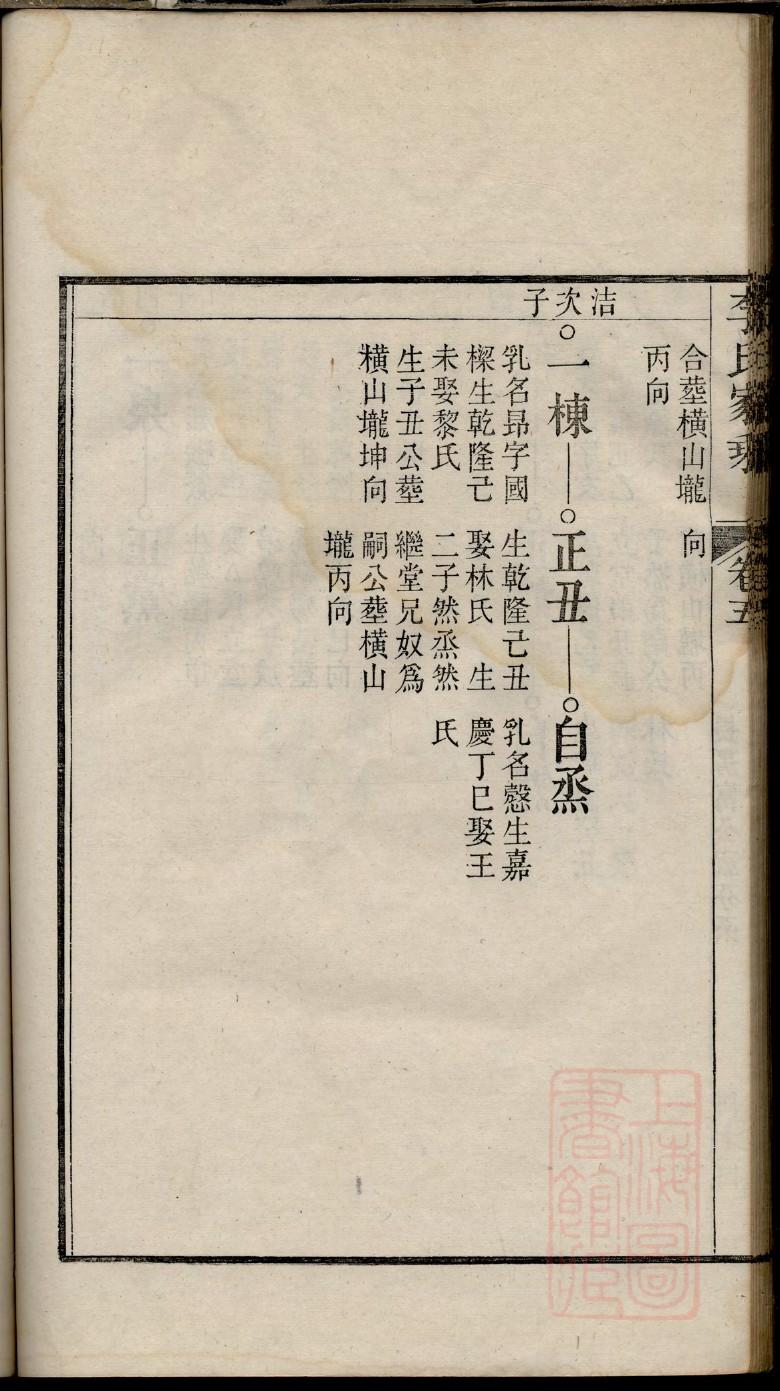 李氏家乘
卷五
合塟橫山壠
丙向
向
洁次子
一棟
乳名昻字國
樑生乾隆己
未娶黎氏
生子丑公塟
橫山壠坤向
正丑
生乾隆己丑
娶林氏　生
二子然烝然
繼堂兄奴爲
嗣公塟橫山
壠丙向
自烝
乳名慤生嘉
慶丁巳娶王
氏
上海圖
書館藏